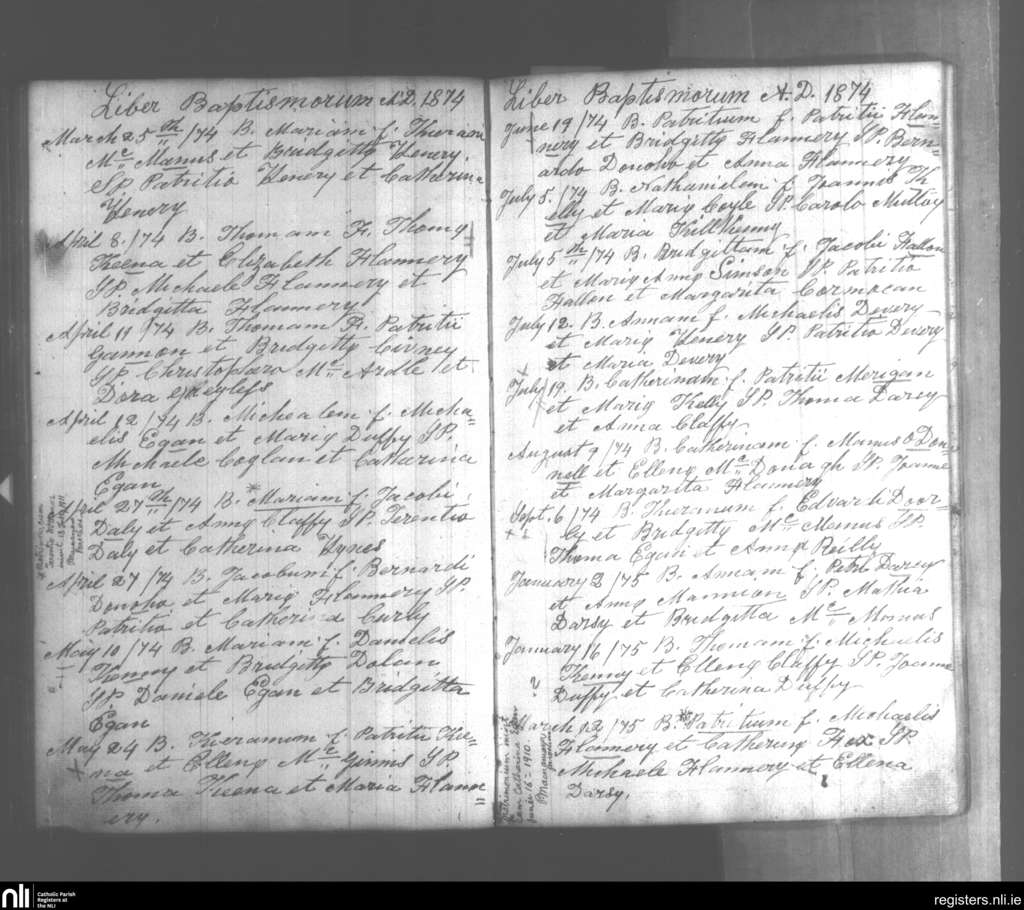 Liber Baptismorum A.D. 1874
March 25th/74 B. Mariam f. Kieran
Mc Manus et Bridgitty Henery.
Sp. Patritio Henery et Catherina
Henery
April 8./74 B. Thomam F. Thomy
Keena et Elizabeth Flannery
SP Michaele Flannery et
Bridgitta Flannery
April 11/74 B. Thomam F. Patritii
Gannon et Bridgitty Cirney
Sp Christophoro Mc Ardle et
Dora
April 12/74 B. Michaelem f. Micha=
elis Egan et Mariy Duffy SP.
Michaele Coglan et Catharina
Egan
April 27th/74 B. *Mariam f. Jacobi
Daly et Anny Claffy SP. Terentio
Daly et Catherina Hynes
April 27/74 B. Jacobum f. Bernardi
Donoho et Mariy Flannery SP.
Patritio et Catherina Curly
May 10/74 B. Mariam f. Danielis
Kenny et Bridgitty Dolan
SP. Daniele Egan et Bridgitta
Egan
May 24 B. Kieranum f. Patritii Kee=
na et Elleny Mc Ginnis SP
Thoma Keena et Maria Flann=
ery.
Liber Baptismorum A.D. 1874
June 19/74 B. Patritium f. Patritii Flan=
nery et Bridgitty Flannery SP. Bern=
ardo Donoho et Anna Flannery
July 5./74 B. Nathanielem f. Joannis K
elly et Mariy Coyle SP. Carolo Mulloy
et Maria
July 5th/74 B. Bridgittam f. Jacobi Fallon
et Mariy Anny Simson SP. Patritio
Fallon et Margarita Cormacan
July 12. B. Annam f. Michaelis Devery
et Mariy Henery SP. Patritio Devery
et Maria Devery
July 19. B. Catherinam f. Patritii Merigan
et Mariy Kelly SP. Thoma Darsy
et Anna Claffy.
August 9/74 B. Catherinam f. Manus O Don=
nell et Elleny Mc Donagh SP. Joanne
et Margarita Flannery
Sept. 6/74 B. Kieranum f. Edvardi Deer
ly et Bridgitty Mc Manus SP
Thoma Egan et Anna Reilly
January 2/75 B. Annam f. Patk Darsy
et Anny Mannion SP. Mathia
Darsy et Bridgitta Mc Manus
January 16/75 B. Thomam f. Michaelis
Kenny et Elleny Claffy SP. Joanne
Duffy et Catherina Duffy
March 12/75 B. *Patritium f. Michaelis
Flannery et Catheriny Fox SP
Michaele Flannery et Ellena
Darsy.
Matrimonium
cum Catherina
June 16th 1910.
nli
Catholic Parish
Registers at
the NLI
registers.nli.ie